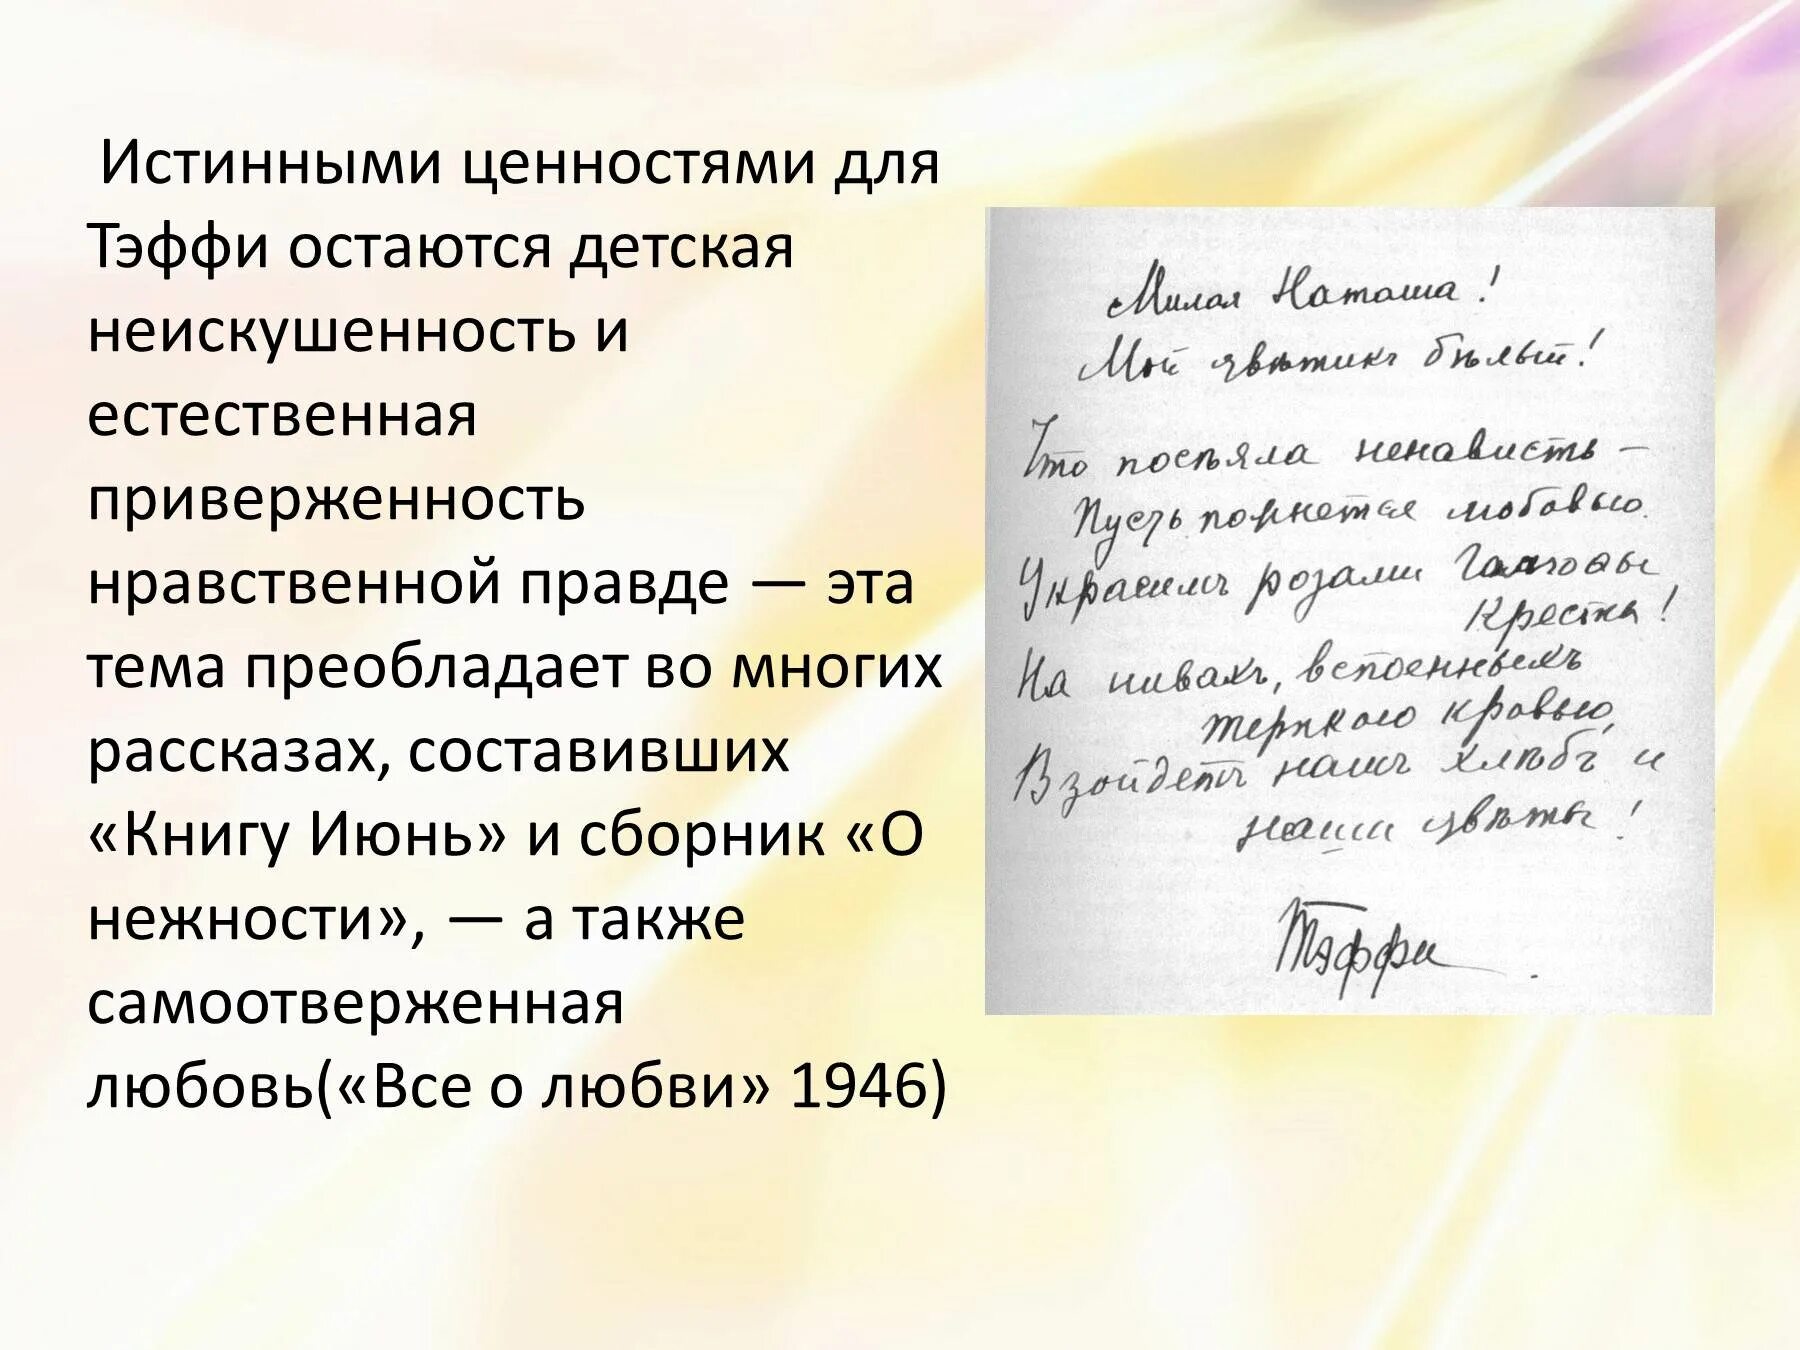 Истинными ценностями для
Тэффи остаются детская
неискушенность и
естественная
приверженность
нравственной правде — эта
тема преобладает во многих
рассказах, составивших
«Книгу Июнь» и сборник «О
нежности», — а также
самоотверженная
любовь(«Все о любви» 1946)
Милая Наташа!
Мой цвѣтикъ бѣлый!
Что посѣяла ненависть —
Пусть пожнется любовью.
Украсимъ розами Голгофы
Кресты!
На нивахъ, вспоенныхъ
терпкою кровью,
Взойдетъ нашъ хлѣбъ и
наши цвѣты!
Тэффи